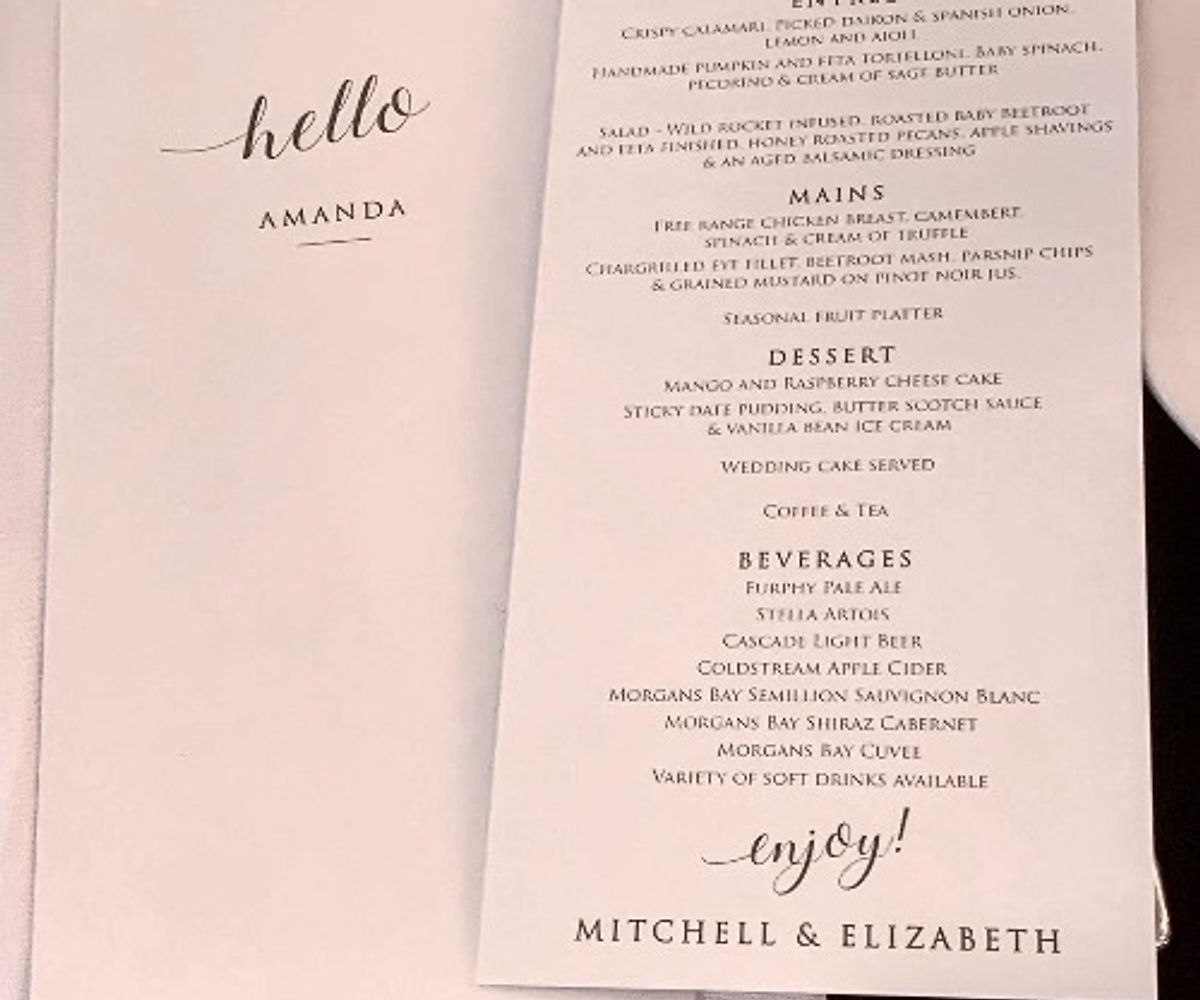 hello
AMANDA
ENTREE
CRISPY CALAMARI, PICKED DAIKON & SPANISH ONION,
LEMON AND AIOLI
HANDMADE PUMPKIN AND FETA TORTELLONI, BABY SPINACH,
PECORINO & CREAM OF SAGE BUTTER
SALAD - WILD ROCKET INFUSED, ROASTED BABY BEETROOT
AND FETA FINISHED, HONEY ROASTED PECANS, APPLE SHAVINGS
& AN AGED BALSAMIC DRESSING
MAINS
FREE RANGE CHICKEN BREAST, CAMEMBERT,
SPINACH & CREAM OF TRUFFLE
CHARGRILLED EYE FILLET, BEETROOT MASH, PARSNIP CHIPS
& GRAINED MUSTARD ON PINOT NOIR JUS.
SEASONAL FRUIT PLATTER
DESSERT
MANGO AND RASPBERRY CHEESE CAKE
STICKY DATE PUDDING, BUTTER SCOTCH SAUCE
& VANILLA BEAN ICE CREAM
WEDDING CAKE SERVED
COFFEE & TEA
BEVERAGES
FURPHY PALE ALE
STELLA ARTOIS
CASCADE LIGHT BEER
COLDSTREAM APPLE CIDER
MORGANS BAY SEMILLION SAUVIGNON BLANC
MORGANS BAY SHIRAZ CABERNET
MORGANS BAY CUVEE
VARIETY OF SOFT DRINKS AVAILABLE
enjoy!
MITCHELL & ELIZABETH